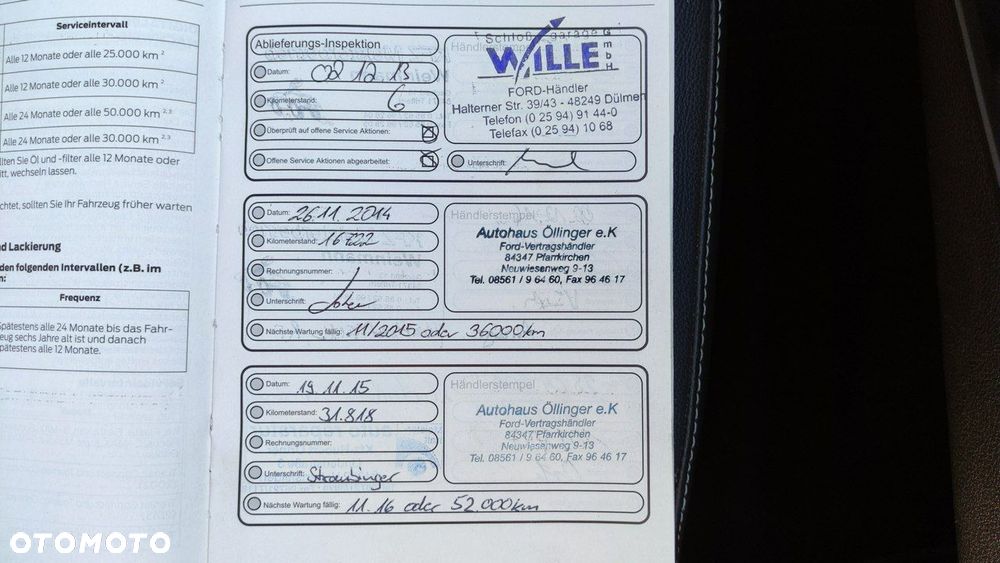 Serviceintervall
Alle 12 Monate oder alle 25.000 km ²
Alle 12 Monate oder alle 30.000 km ²
Alle 24 Monate oder alle 50.000 km ²·³
Alle 24 Monate oder alle 30.000 km ²·³
llten Sie Öl und -filter alle 12 Monate oder
itt, wechseln lassen.
chtet, sollten Sie Ihr Fahrzeug früher warten
d Lackierung
den folgenden Intervallen (z.B. im
n:
Frequenz
pätestens alle 24 Monate bis das Fahr-
eug sechs Jahre alt ist und danach
pätestens alle 12 Monate.
Ablieferungs-Inspektion
Datum: 02 12 13
Kilometerstand: 6
Überprüft auf offene Service Aktionen:
Offene Service Aktionen abgearbeitet:
Händlerstempel
Schloßgarage
WILLE GmbH
FORD-Händler
Halterner Str. 39/43 - 48249 Dülmen
Telefon (0 25 94) 91 44-0
Telefax (0 25 94) 10 68
Unterschrift:
Datum: 26.11.2014
Kilometerstand: 16722
Rechnungsnummer: /
Unterschrift:
Nächste Wartung fällig: 11/2015 oder 36000km
Händlerstempel
Autohaus Öllinger e.K
Ford-Vertragshändler
84347 Pfarrkirchen
Neuwiesenweg 9-13
Tel. 08561 / 9 64 60, Fax 96 46 17
Datum: 19.11.15
Kilometerstand: 31.818
Rechnungsnummer:
Unterschrift: Straubinger
Nächste Wartung fällig: 11.16 oder 52.000km
Händlerstempel
Autohaus Öllinger e.K
Ford-Vertragshändler
84347 Pfarrkirchen
Neuwiesenweg 9-13
Tel. 08561 / 9 64 60, Fax 96 46 17
OTOMOTO